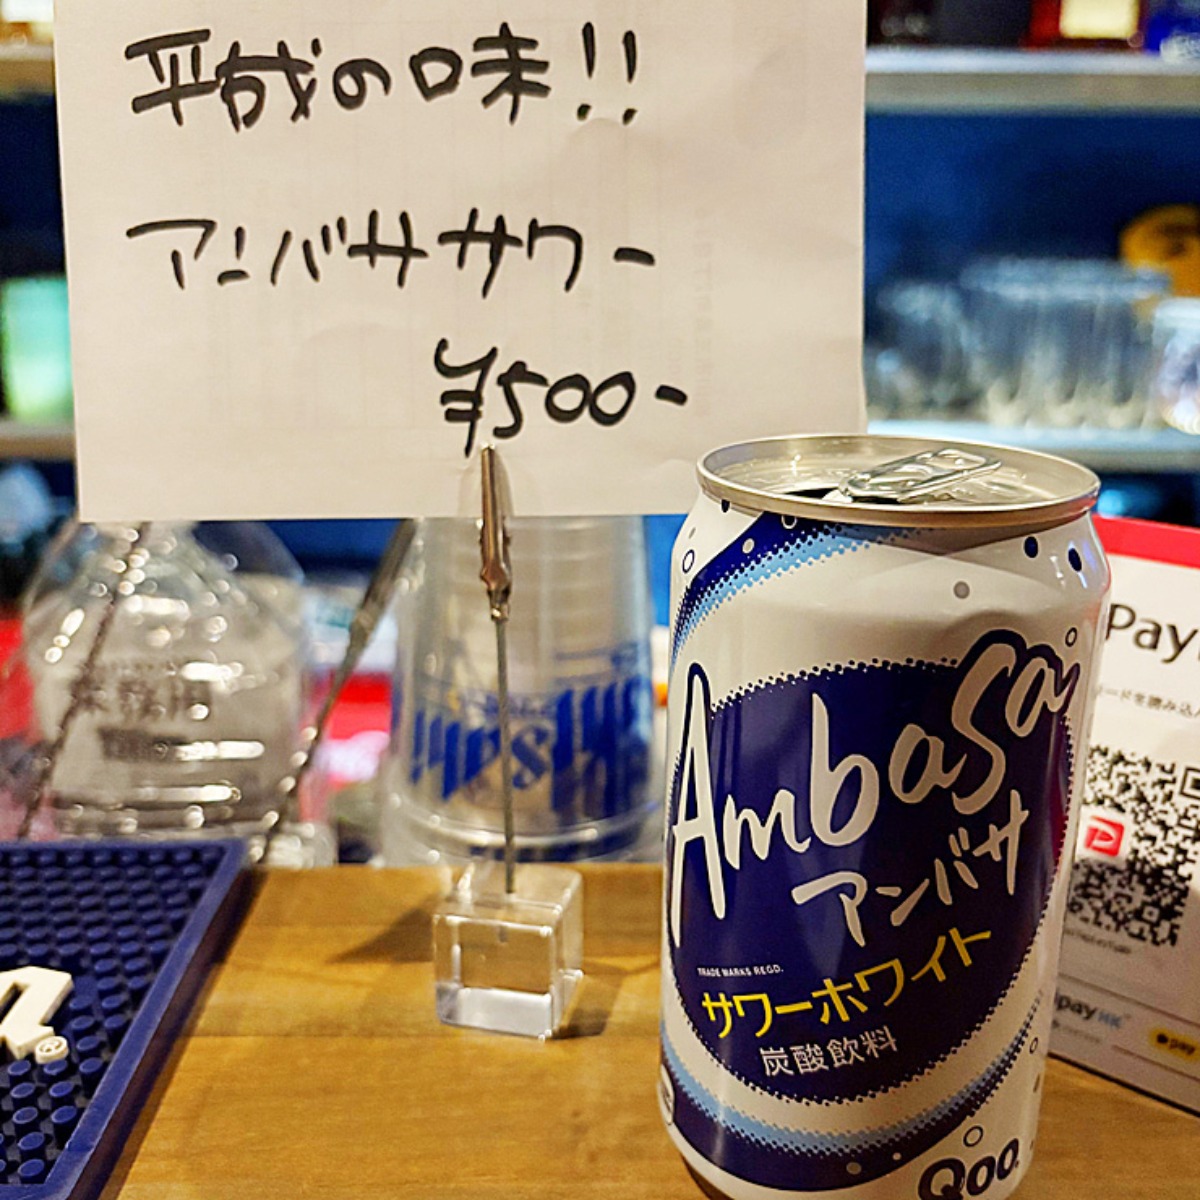 平成の味!!
アンバササワー
¥500-
業務用
Asahi
Ambasa
アンバサ
TRADE MARKS REGD.
サワーホワイト
炭酸飲料
Qoo
Pay
ードを読み込
pay HK
pay